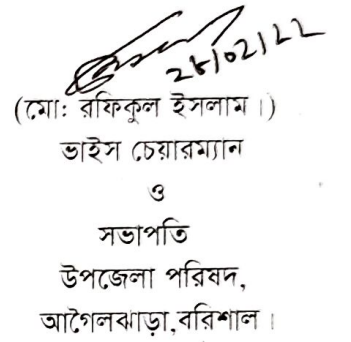 ২৮/০২/২২
(মো: রফিকুল ইসলাম।)
ভাইস চেয়ারম্যান
ও
সভাপতি
উপজেলা পরিষদ,
আগৈলঝাড়া,বরিশাল।